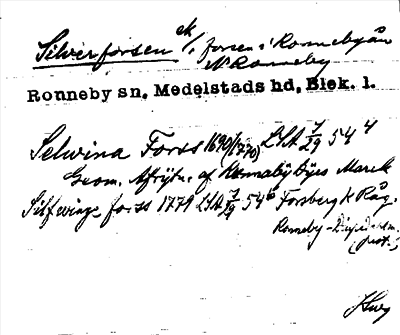 Silverforsen ek. /. forsen i Ronnebyån
N Ronneby
Ronneby sn, Medelstads hd, Blek. l.
Selwina Forss 1690 (1770) LSA 7/29 54 4
Geom. Afrijtn. af Bys Marck
Silfwinge forss 1779 LSA 7/29 54 6 Forsberg k Råg.
Ronneby-